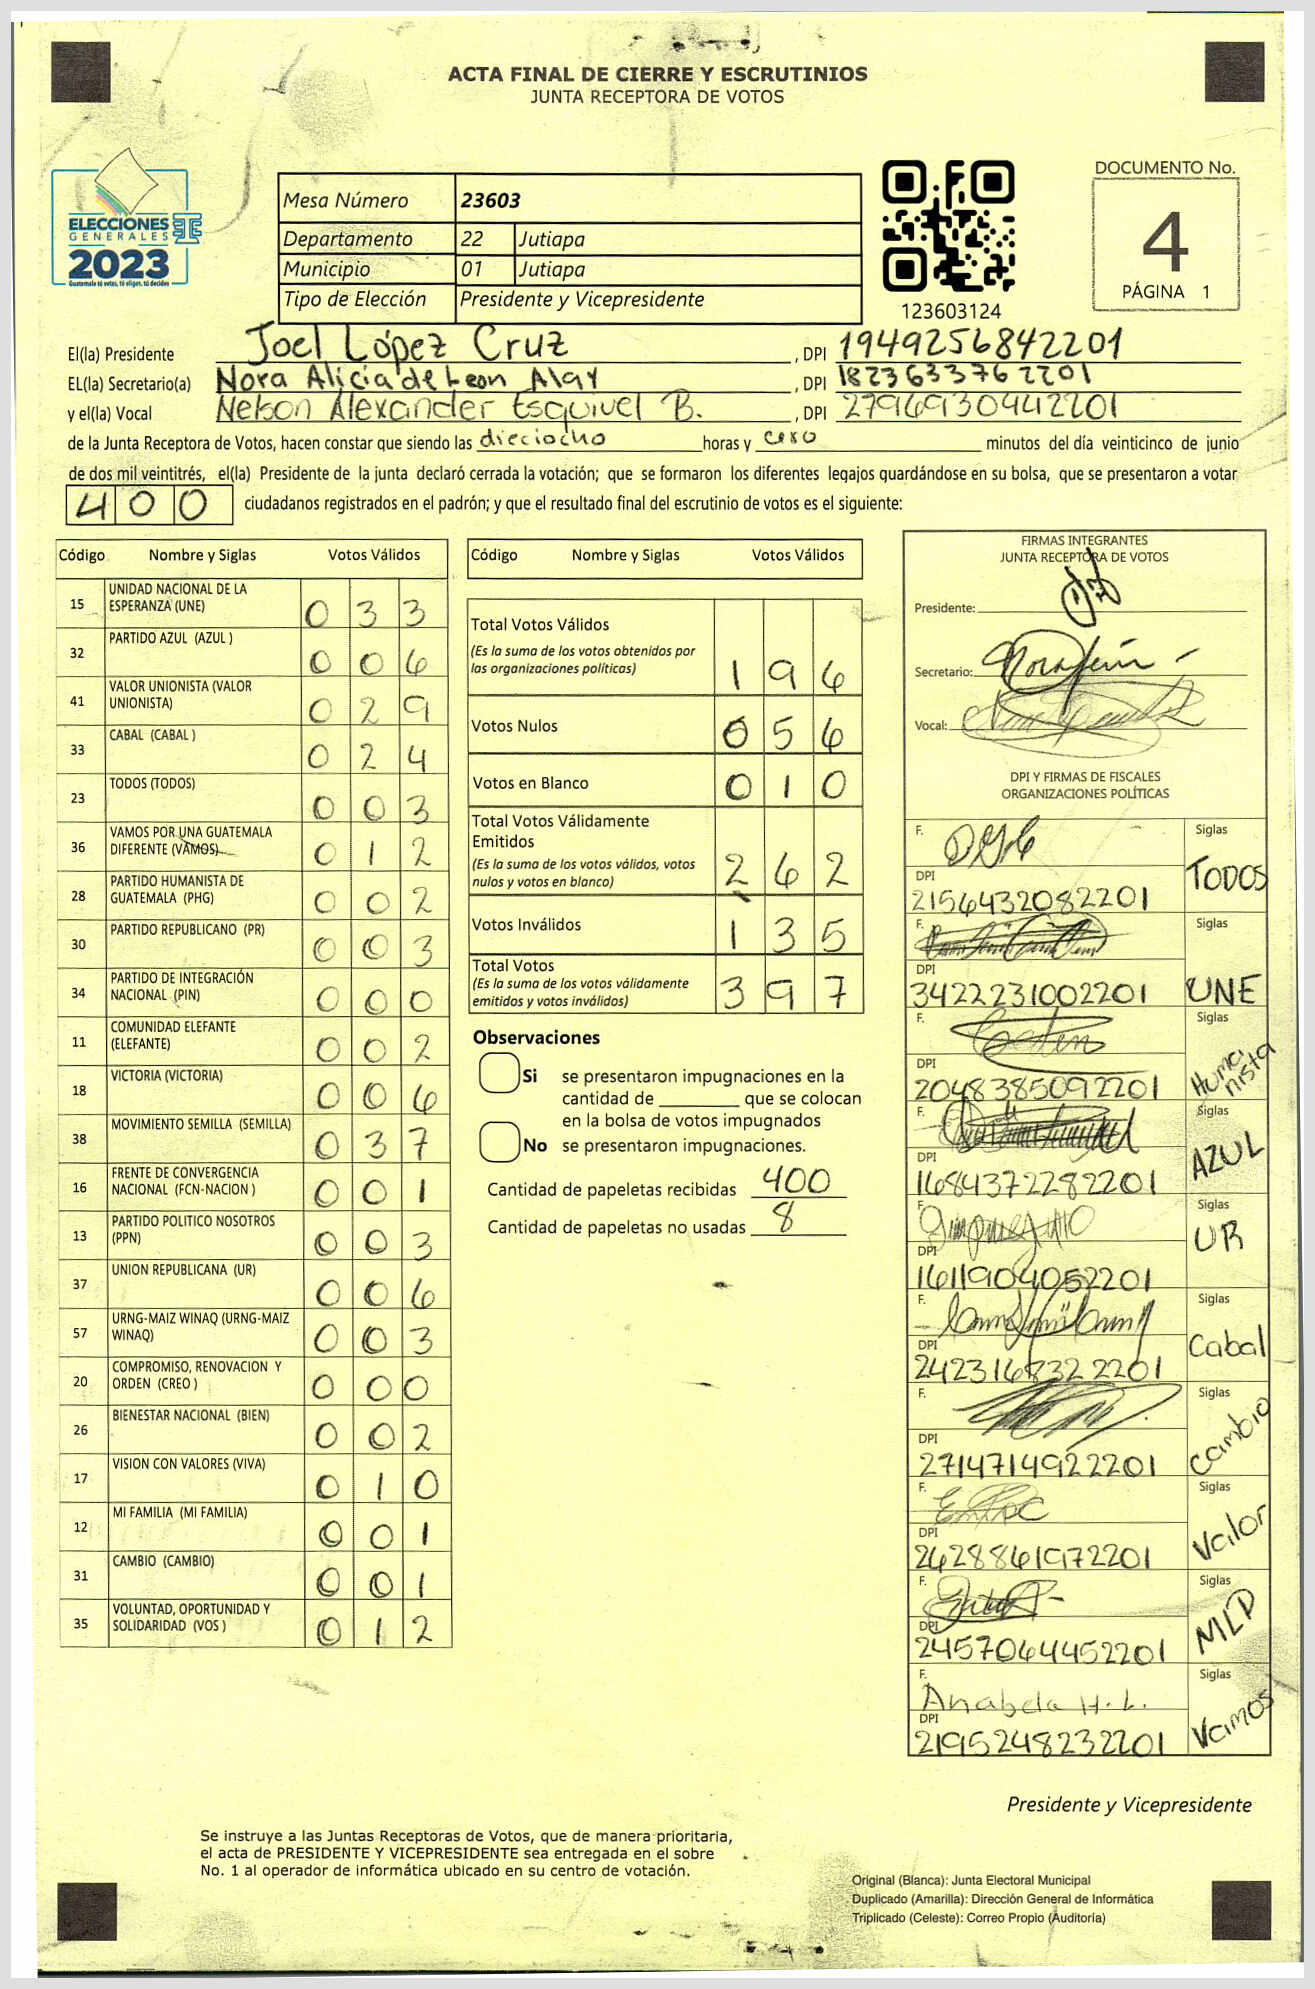 ACTA FINAL DE CIERRE Y ESCRUTINIOS
JUNTA RECEPTORA DE VOTOS
ELECCIONES
GENERALES
2023
Guatemala tú votas, tú eliges, tú decides
Mesa Número 23603
Departamento 22 Jutiapa
Municipio 01 Jutiapa
Tipo de Elección Presidente y Vicepresidente
123603124
DOCUMENTO No.
4
PÁGINA 1
El(la) Presidente Joel López Cruz , DPI 1949256842201
EL(la) Secretario(a) Nora Alicia de Leon Alay , DPI 1823633762201
y el(la) Vocal Nelson Alexander Esquivel B. , DPI 2796930442201
de la Junta Receptora de Votos, hacen constar que siendo las dieciocho horas y cero minutos del día veinticinco de junio
de dos mil veintitrés, el(la) Presidente de la junta declaró cerrada la votación; que se formaron los diferentes legajos quardándose en su bolsa, que se presentaron a votar
400 ciudadanos registrados en el padrón; y que el resultado final del escrutinio de votos es el siguiente:
Código Nombre y Siglas Votos Válidos
15 UNIDAD NACIONAL DE LA ESPERANZA (UNE) 033
32 PARTIDO AZUL (AZUL ) 006
41 VALOR UNIONISTA (VALOR UNIONISTA) 029
33 CABAL (CABAL ) 024
23 TODOS (TODOS) 003
36 VAMOS POR UNA GUATEMALA DIFERENTE (VAMOS) 012
28 PARTIDO HUMANISTA DE GUATEMALA (PHG) 002
30 PARTIDO REPUBLICANO (PR) 003
34 PARTIDO DE INTEGRACIÓN NACIONAL (PIN) 000
11 COMUNIDAD ELEFANTE (ELEFANTE) 002
18 VICTORIA (VICTORIA) 006
38 MOVIMIENTO SEMILLA (SEMILLA) 037
16 FRENTE DE CONVERGENCIA NACIONAL (FCN-NACION ) 001
13 PARTIDO POLITICO NOSOTROS (PPN) 003
37 UNION REPUBLICANA (UR) 006
57 URNG-MAIZ WINAQ (URNG-MAIZ WINAQ) 003
20 COMPROMISO, RENOVACION Y ORDEN (CREO ) 000
26 BIENESTAR NACIONAL (BIEN) 002
17 VISION CON VALORES (VIVA) 010
12 MI FAMILIA (MI FAMILIA) 001
31 CAMBIO (CAMBIO) 001
35 VOLUNTAD, OPORTUNIDAD Y SOLIDARIDAD (VOS ) 012
Código Nombre y Siglas Votos Válidos
Total Votos Válidos 196
(Es la suma de los votos obtenidos por
las organizaciones políticas)
Votos Nulos 056
Votos en Blanco 010
Total Votos Válidamente
Emitidos 262
(Es la suma de los votos válidos, votos
nulos y votos en blanco)
Votos Inválidos 135
Total Votos 397
(Es la suma de los votos válidamente
emitidos y votos inválidos)
Observaciones
Si se presentaron impugnaciones en la
cantidad de ________ que se colocan
en la bolsa de votos impugnados
No se presentaron impugnaciones.
Cantidad de papeletas recibidas 400
Cantidad de papeletas no usadas 8
FIRMAS INTEGRANTES
JUNTA RECEPTORA DE VOTOS
Presidente:
Secretario:
Vocal:
DPI Y FIRMAS DE FISCALES
ORGANIZACIONES POLÍTICAS
F. Siglas
DPI TODOS
2156432082201
F. Siglas
DPI
3422231002201 UNE
F. Siglas
DPI Humanista
2048385092201
F. Siglas
DPI AZUL
1684372282201
F. Siglas
DPI UR
1611904052201
F. Siglas
DPI Cabal
2423168322201
F. Siglas
DPI Cambio
2714714922201
F. Siglas
DPI Valor
2428861972201
F. Siglas
DPI MLP
2457064452201
F. Anabela H. L. Siglas
DPI Vamos
2195248232201
Presidente y Vicepresidente
Se instruye a las Juntas Receptoras de Votos, que de manera prioritaria,
el acta de PRESIDENTE Y VICEPRESIDENTE sea entregada en el sobre
No. 1 al operador de informática ubicado en su centro de votación.
Original (Blanca): Junta Electoral Municipal
Duplicado (Amarilla): Dirección General de Informática
Triplicado (Celeste): Correo Propio (Auditoría)